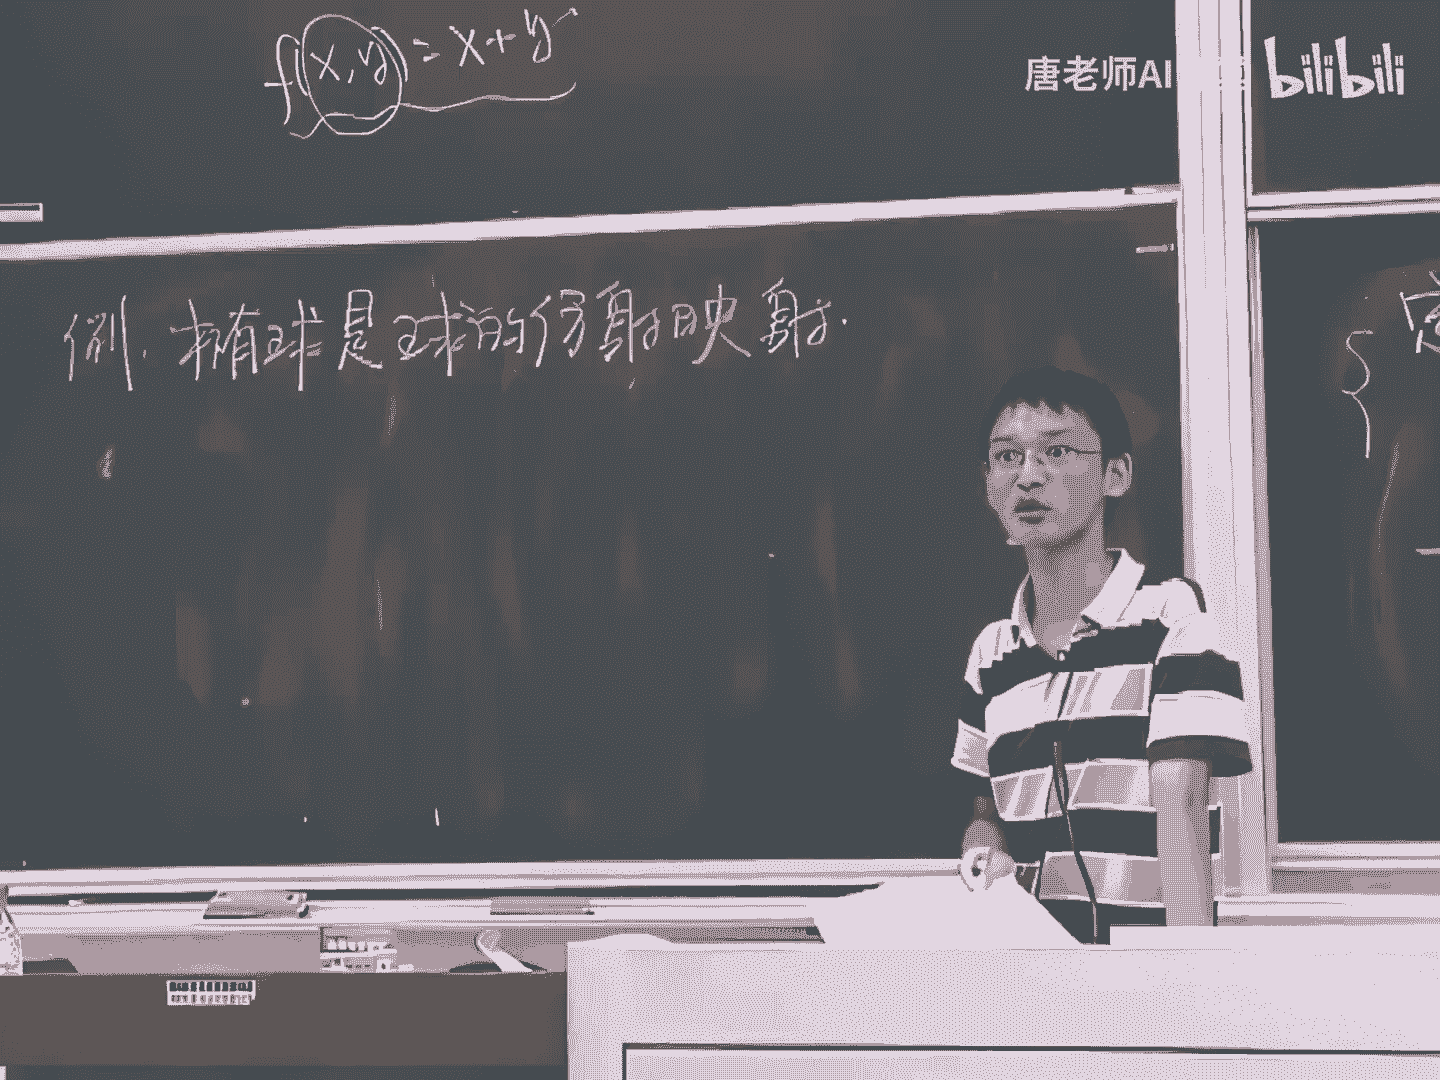 f(x,y)=x+y
唐老师AI
bilibili
例. 椭球是球的仿射映射.